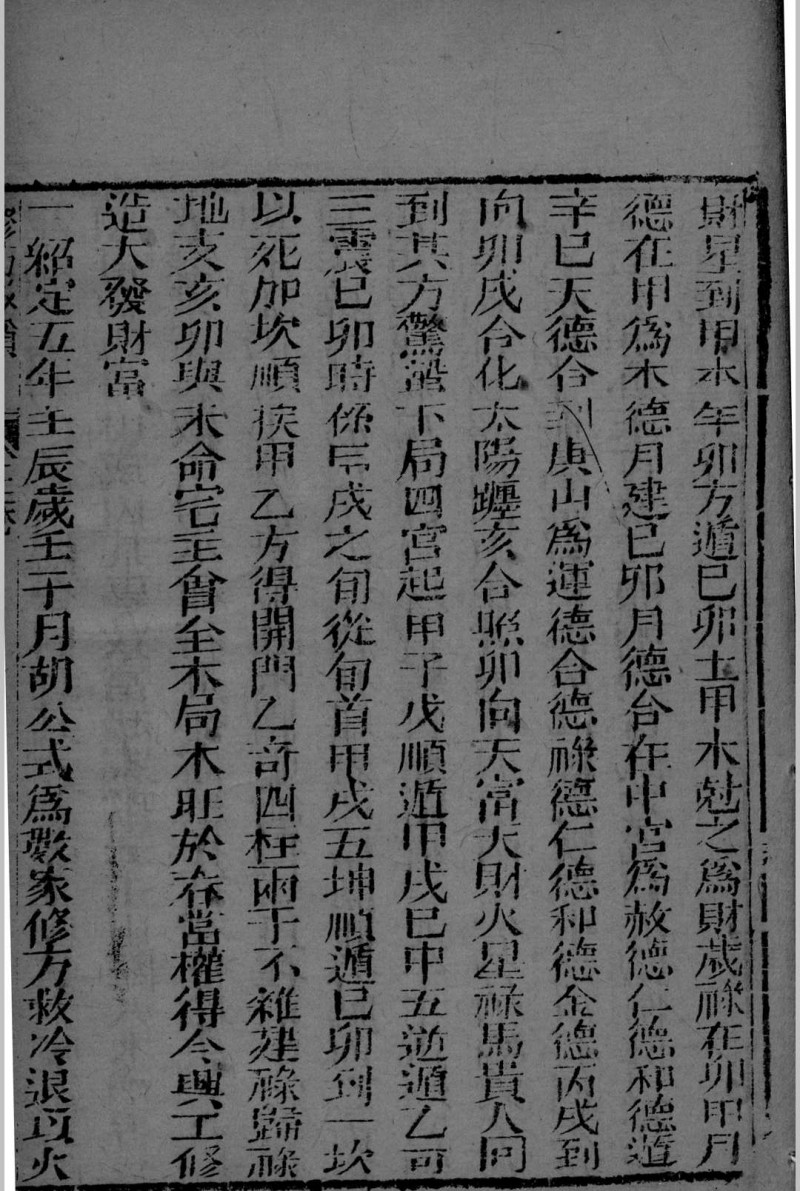 財星到甲木年卯方遁己卯土甲木尅之爲財歲祿在卯甲月
德在甲爲木德月建己卯月德合在中宮爲赦德仁德和德遁
辛巳天德合到庚山爲運德合德祿德仁德和德金德丙戌到
向卯戌合化太陽躔亥合照卯向天富天財火星祿馬貴人同
到其方驚蟄下局四宮起甲子戊順遁甲戌巳中五逆遁乙奇
三震己卯時係甲戌之旬從旬首甲戌五坤順遁己卯到一坎
以死加坎順挨甲乙方得開門乙奇四柱兩干不雜建祿歸祿
地支亥卯與未命宅主會全木局木旺於春當權得令興工修
造大發財富
一紹定五年壬辰歲壬子月胡公式爲數家修方救冷退以火